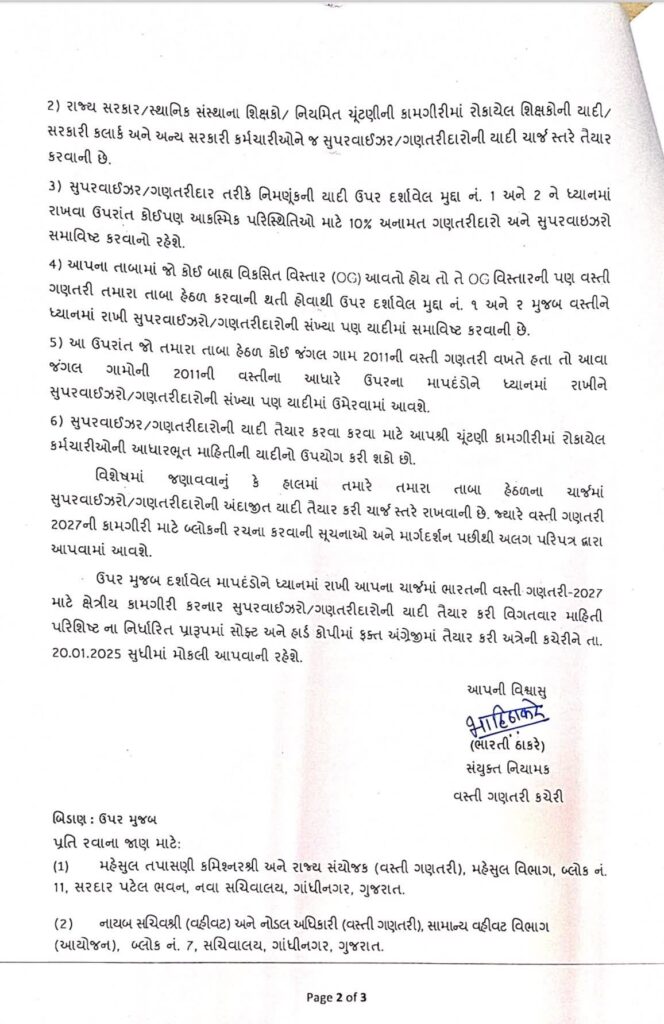 2) રાજ્ય સરકાર/સ્થાનિક સંસ્થાના શિક્ષકો/ નિયમિત ચૂંટણીની કામગીરીમાં રોકાયેલ શિક્ષકોની યાદી/
સરકારી કલાર્ક અને અન્ય સરકારી કર્મચારીઓને જ સુપરવાઈઝર/ગણતરીદારોની યાદી ચાર્જ સ્તરે તૈયાર
કરવાની છે.
3) સુપરવાઈઝર/ગણતરીદાર તરીકે નિમણૂંકની યાદી ઉપર દર્શાવેલ મુદ્દા નં. 1 અને 2 ને ધ્યાનમાં
રાખવા ઉપરાંત કોઈપણ આકસ્મિક પરિસ્થિતિઓ માટે 10% અનામત ગણતરીદારો અને સુપરવાઇઝરો
સમાવિષ્ટ કરવાનો રહેશે.
4) આપના તાબામાં જો કોઈ બાહ્ય વિકસિત વિસ્તાર (OG) આવતો હોય તો તે OG વિસ્તારની પણ વસ્તી
ગણતરી તમારા તાબા હેઠળ કરવાની થતી હોવાથી ઉપર દર્શાવેલ મુદ્દા નં. ૧ અને ૨ મુજબ વસ્તીને
ધ્યાનમાં રાખી સુપરવાઈઝરો/ગણતરીદારોની સંખ્યા પણ યાદીમાં સમાવિષ્ટ કરવાની છે.
5) આ ઉપરાંત જો તમારા તાબા હેઠળ કોઈ જંગલ ગામ 2011ની વસ્તી ગણતરી વખતે હતા તો આવા
જંગલ ગામોની 2011ની વસ્તીના આધારે ઉપરના માપદંડોને ધ્યાનમાં રાખીને
સુપરવાઈઝરો/ગણતરીદારોની સંખ્યા પણ યાદીમાં ઉમેરવામાં આવશે.
6) સુપરવાઈઝર/ગણતરીદારોની યાદી તૈયાર કરવા કરવા માટે આપશ્રી ચૂંટણી કામગીરીમાં રોકાયેલ
કર્મચારીઓની આધારભૂત માહિતીની યાદીનો ઉપયોગ કરી શકો છો.
વિશેષમાં જણાવવાનું કે હાલમાં તમારે તમારા તાબા હેઠળના ચાર્જમાં
સુપરવાઈઝરો/ગણતરીદારોની અંદાજીત યાદી તૈયાર કરી ચાર્જ સ્તરે રાખવાની છે. જ્યારે વસ્તી ગણતરી
2027ની કામગીરી માટે બ્લોકની રચના કરવાની સૂચનાઓ અને માર્ગદર્શન પછીથી અલગ પરિપત્ર દ્વારા
આપવામાં આવશે.
ઉપર મુજબ દર્શાવેલ માપદંડોને ધ્યાનમાં રાખી આપના ચાર્જમાં ભારતની વસ્તી ગણતરી-2027
માટે ક્ષેત્રીય કામગીરી કરનાર સુપરવાઈઝરો/ગણતરીદારોની યાદી તૈયાર કરી વિગતવાર માહિતી
પરિશિષ્ટ ના નિર્ધારિત પ્રારૂપમાં સોફ્ટ અને હાર્ડ કોપીમાં ફક્ત અંગ્રેજીમાં તૈયાર કરી અત્રેની કચેરીને તા.
20.01.2025 સુધીમાં મોકલી આપવાની રહેશે.
આપની વિશ્વાસુ
(ભારતી ઠાકરે)
સંયુક્ત નિયામક
વસ્તી ગણતરી કચેરી
બિડાણ : ઉપર મુજબ
પ્રતિ રવાના જાણ માટે:
(1) મહેસુલ તપાસણી કમિશ્નરશ્રી અને રાજ્ય સંયોજક (વસ્તી ગણતરી), મહેસુલ વિભાગ, બ્લોક નં.
11, સરદાર પટેલ ભવન, નવા સચિવાલય, ગાંધીનગર, ગુજરાત.
(2) નાયબ સચિવશ્રી (વહીવટ) અને નોડલ અધિકારી (વસ્તી ગણતરી), સામાન્ય વહીવટ વિભાગ
(આયોજન), બ્લોક નં. 7, સચિવાલય, ગાંધીનગર, ગુજરાત.
Page 2 of 3